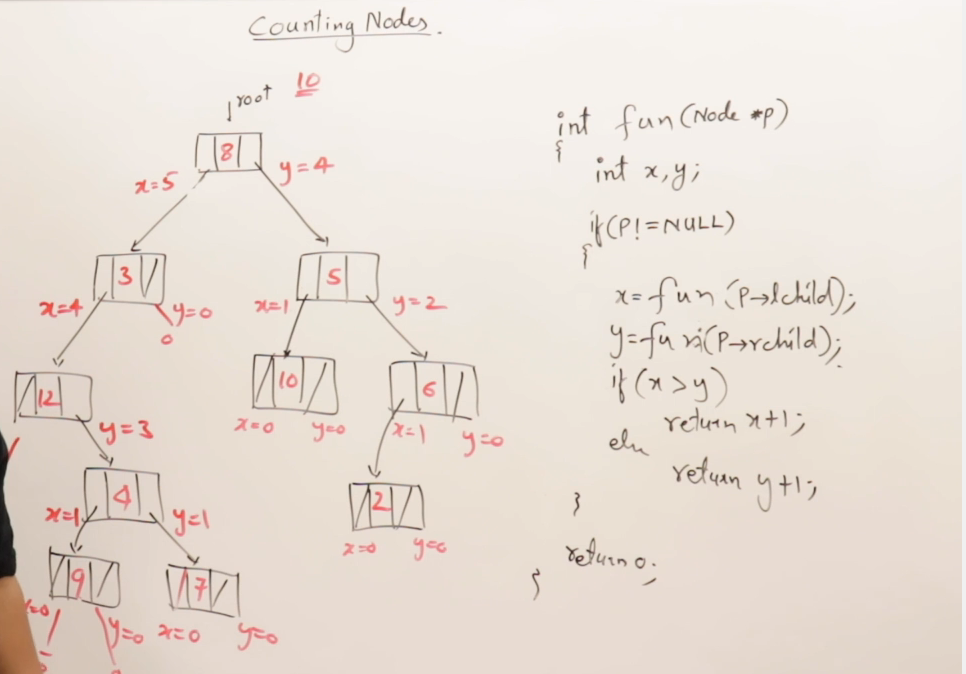 Counting Nodes.
root 10
8
x=5 y=4
3 5
x=4 y=0 x=1 y=2
0
12 10 6
y=3 x=0 y=0 x=1 y=0
4 2
x=1 y=1 x=0 y=0
9 7
=0 y=0 x=0 y=0
int fun(Node *p)
{
int x,y;
if(P!=NULL)
{
x=fun(P→lchild);
y=fun(P→rchild);
if(x>y)
return x+1;
else
return y+1;
}
return 0;
}